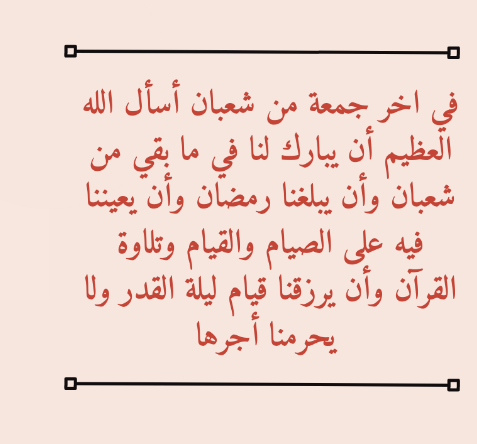 في اخر جمعة من شعبان أسأل الله
العظيم أن يبارك لنا في ما بقي من
شعبان وأن يبلغنا رمضان وأن يعيننا
فيه على الصيام والقيام وتلاوة
القرآن وأن يرزقنا قيام ليلة القدر ولا
يحرمنا أجرها